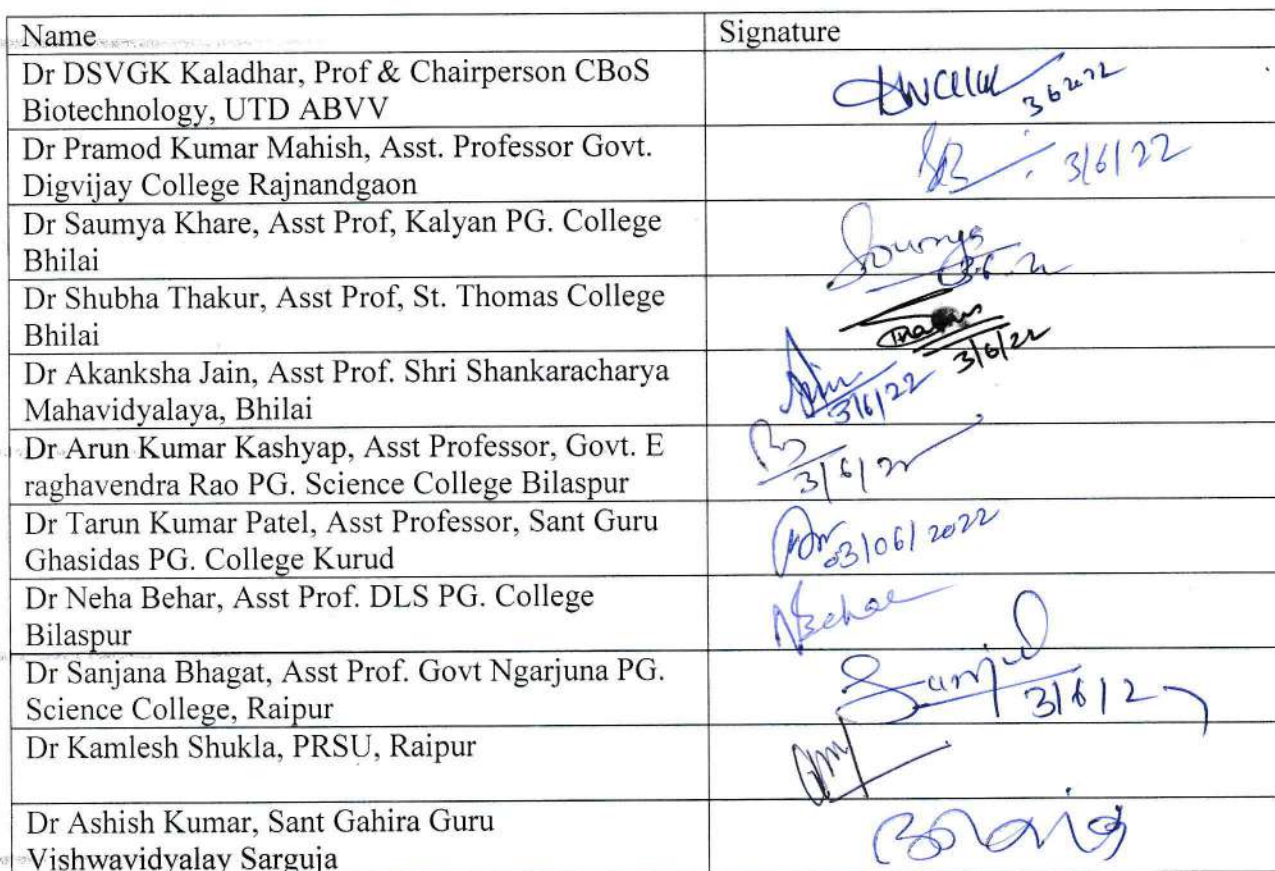 Name
Signature
Dr DSVGK Kaladhar, Prof & Chairperson CBoS
Biotechnology, UTD ABVV
3 6 2022
Dr Pramod Kumar Mahish, Asst. Professor Govt.
Digvijay College Rajnandgaon
3/6/22
Dr Saumya Khare, Asst Prof, Kalyan PG. College
Bhilai
Dr Shubha Thakur, Asst Prof, St. Thomas College
Bhilai
3/6/22
Dr Akanksha Jain, Asst Prof. Shri Shankaracharya
Mahavidyalaya, Bhilai
3/6/22
Dr Arun Kumar Kashyap, Asst Professor, Govt. E
raghavendra Rao PG. Science College Bilaspur
3/6/22
Dr Tarun Kumar Patel, Asst Professor, Sant Guru
Ghasidas PG. College Kurud
03/06/2022
Dr Neha Behar, Asst Prof. DLS PG. College
Bilaspur
NBehar
Dr Sanjana Bhagat, Asst Prof. Govt Ngarjuna PG.
Science College, Raipur
Dr Kamlesh Shukla, PRSU, Raipur
Dr Ashish Kumar, Sant Gahira Guru
Vishwavidyalay Sarguja